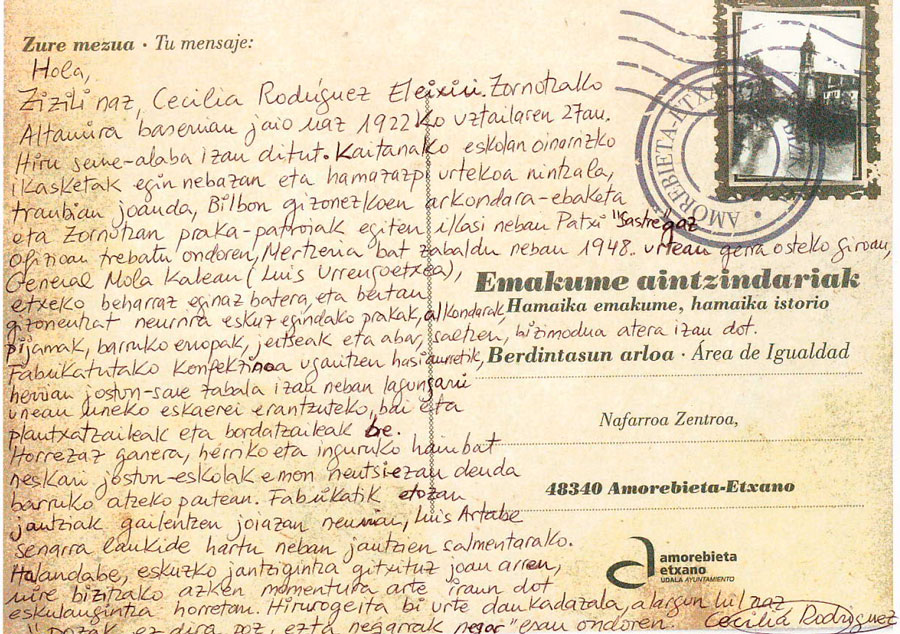 Zure mezua · Tu mensaje:
Hola,
Zizili naz, Cecilia Rodríguez Eleixiri. Zornotzako
Altamira baserrian jaio naz 1922ko uztailaren 27an.
Hiru seme-alaba izan ditut. Kaitanako eskolan oinarrizko
ikasketak egin nebazan eta hamazazpi urtekoa nintzala,
tranbian joanda, Bilbon gizonezkoen arkondara-ebaketa
eta Zornotzan praka-patroiak egiten ikasi neban Patxi "Sastregaz
Ofizioan trebatu ondoren, Mertzeria bat zabaldu neban 1948. urtean gerra osteko giroan,
General Mola Kalean (Luis Urrengoetxea),
etxeko beharraz eginaz batera, eta bertan
gizonentzat neurrira eskuz egindako prakak, alkondarak,
pijamak, barruko erropak, jertseak eta abar, saltzen, bizimodua atera izan dot.
Fabrikatutako konfekzinoa ugaritzen hasi aurretik,
herrian jostun-sare zabala izan neban lagungarri
unean uneko eskaerei erantzuteko, bai eta
plantxatzaileak eta bordatzaileak be.
Horrezaz ganera, herriko eta inguruko hainbat
neskari jostun-eskolak emon neutsiezan denda
barruko atzeko partean. Fabrikatik etozan
jantziak gailentzen joiazan neurrian, Luis Artabe
senarra laukide hartu neban jantzien salmentarako.
Halandabe, eskuzko jantzigintza gitxituz joan arren,
nire bizitzako azken momentura arte iraun dot
eskulangintza horretan. Hirurogeita bi urte daukadazala, alargun hil naz
"pozak ez dira poz, ezta negarrak negar" esan ondoren. Cecilia Rodríguez
Emakume aintzindariak
Hamaika emakume, hamaika istorio
Berdintasun arloa · Área de Igualdad
Nafarroa Zentroa,
48340 Amorebieta-Etxano
amorebieta
etxano
UDALA AYUNTAMIENTO
AMOREBIETA-ETXANO